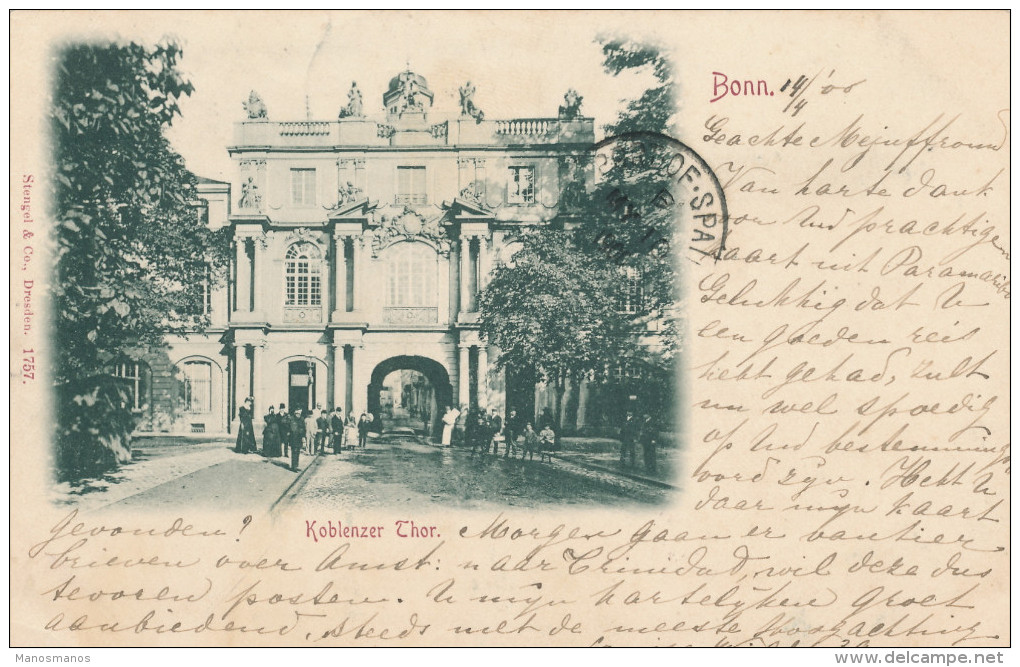 Bonn. 14/4 '00
Geachte Mejuffrouw
Van harte dank
voor Uw prachtige
kaart uit Paramaribo
Gelukkig dat U
een goeden reis
hebt gehad, zult
nu wel spoedig
op Uw bestemming
zijn. Hebt U
daar mijn kaart
gevonden?
Koblenzer Thor.
Morgen gaan er van hier
brieven over Amst: naar Trinidad, wil deze dus
te voren posten. U mijn hartelijken groet
aanbiedend, steeds met de meeste hoogachting
Stengel & Co., Dresden. 1757.
Manosmanos
www.delcampe.net